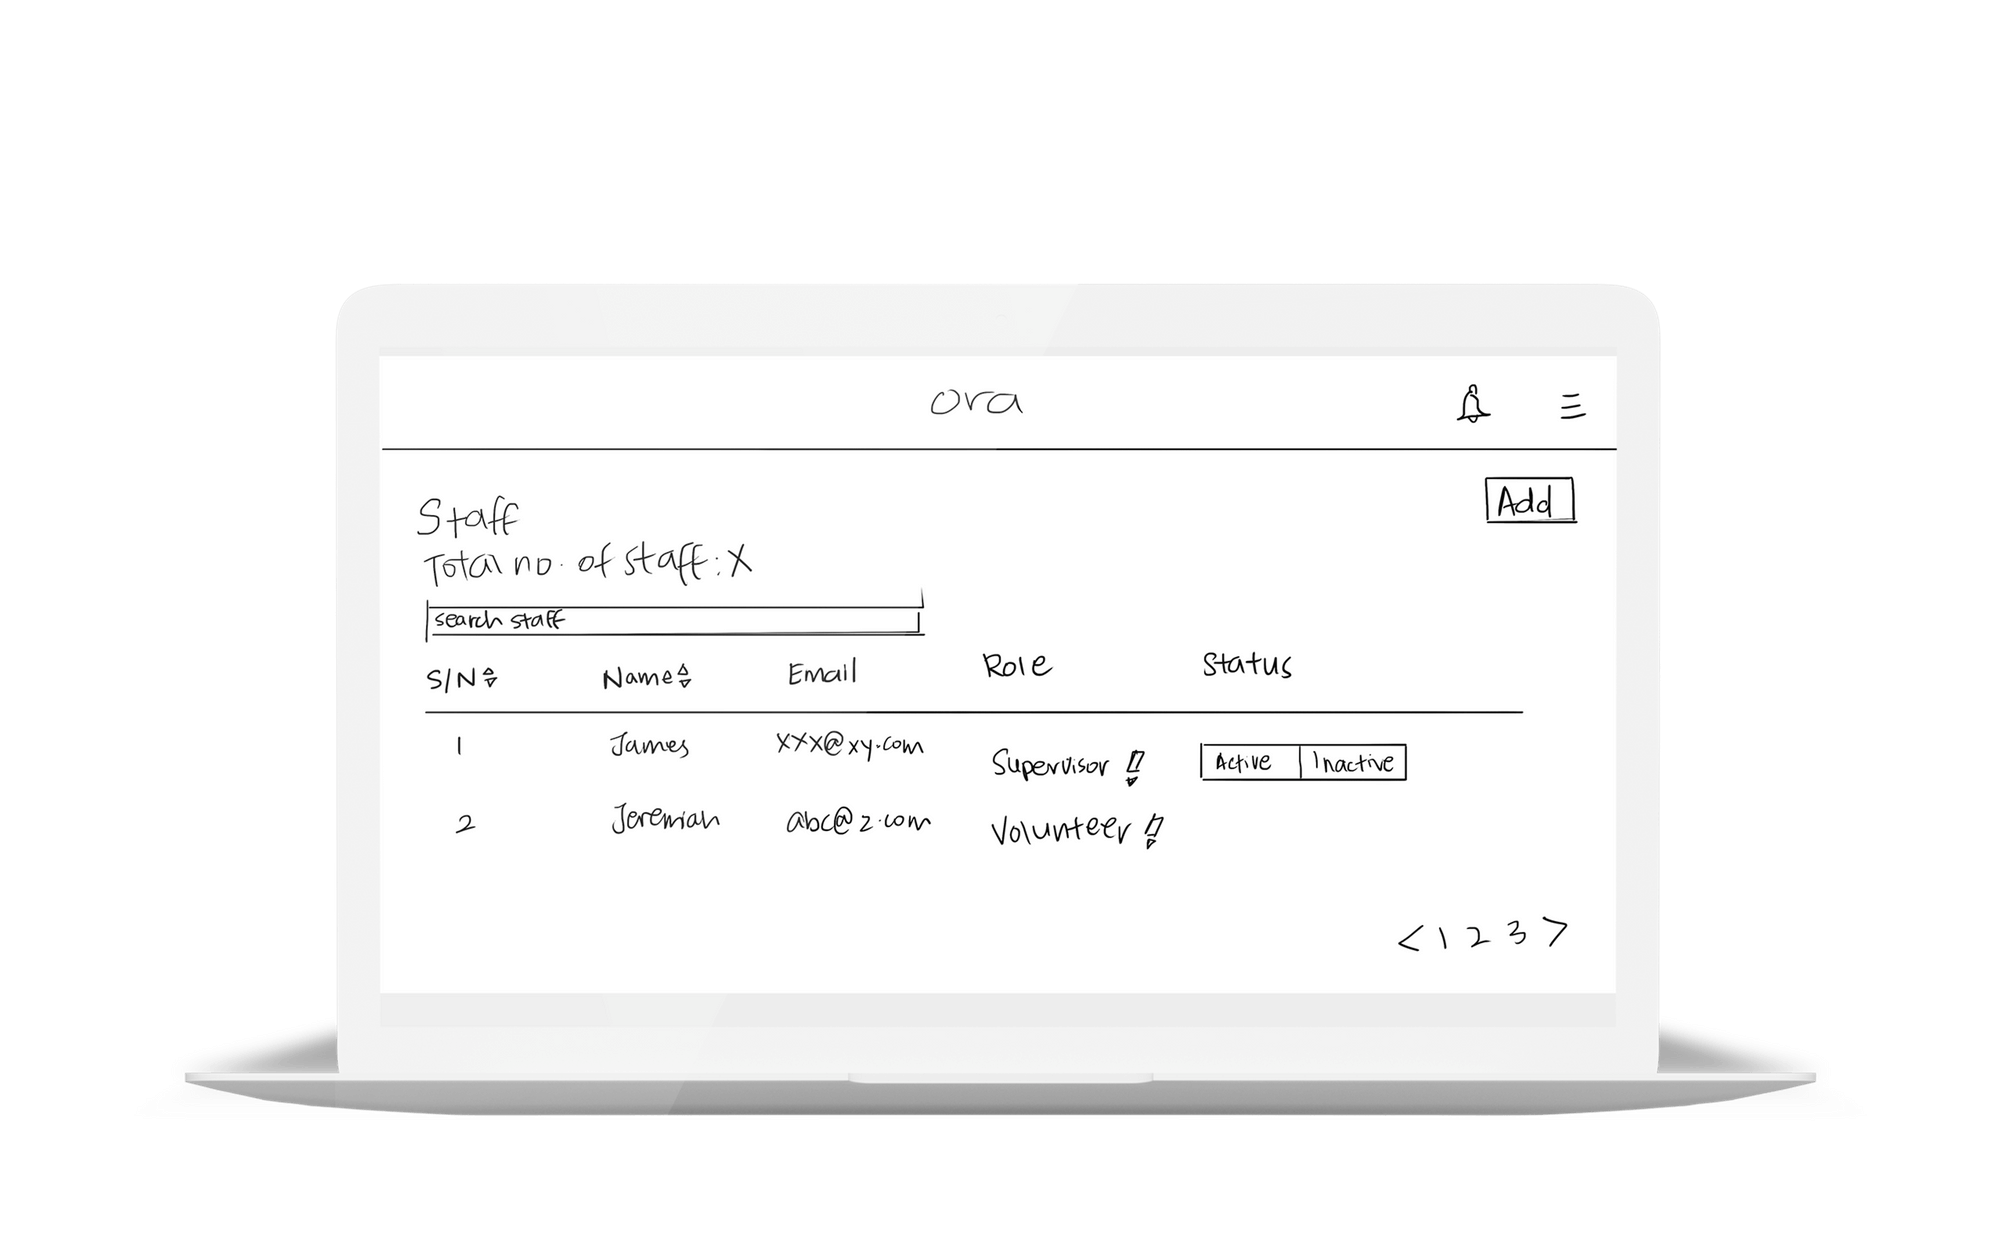 ora
Add
Staff
Total no. of staff: X
search staff
S/N Name Email Role Status
1 James xxx@xy.com Supervisor Active Inactive
2 Jeremiah abc@z.com Volunteer
< 1 2 3 >